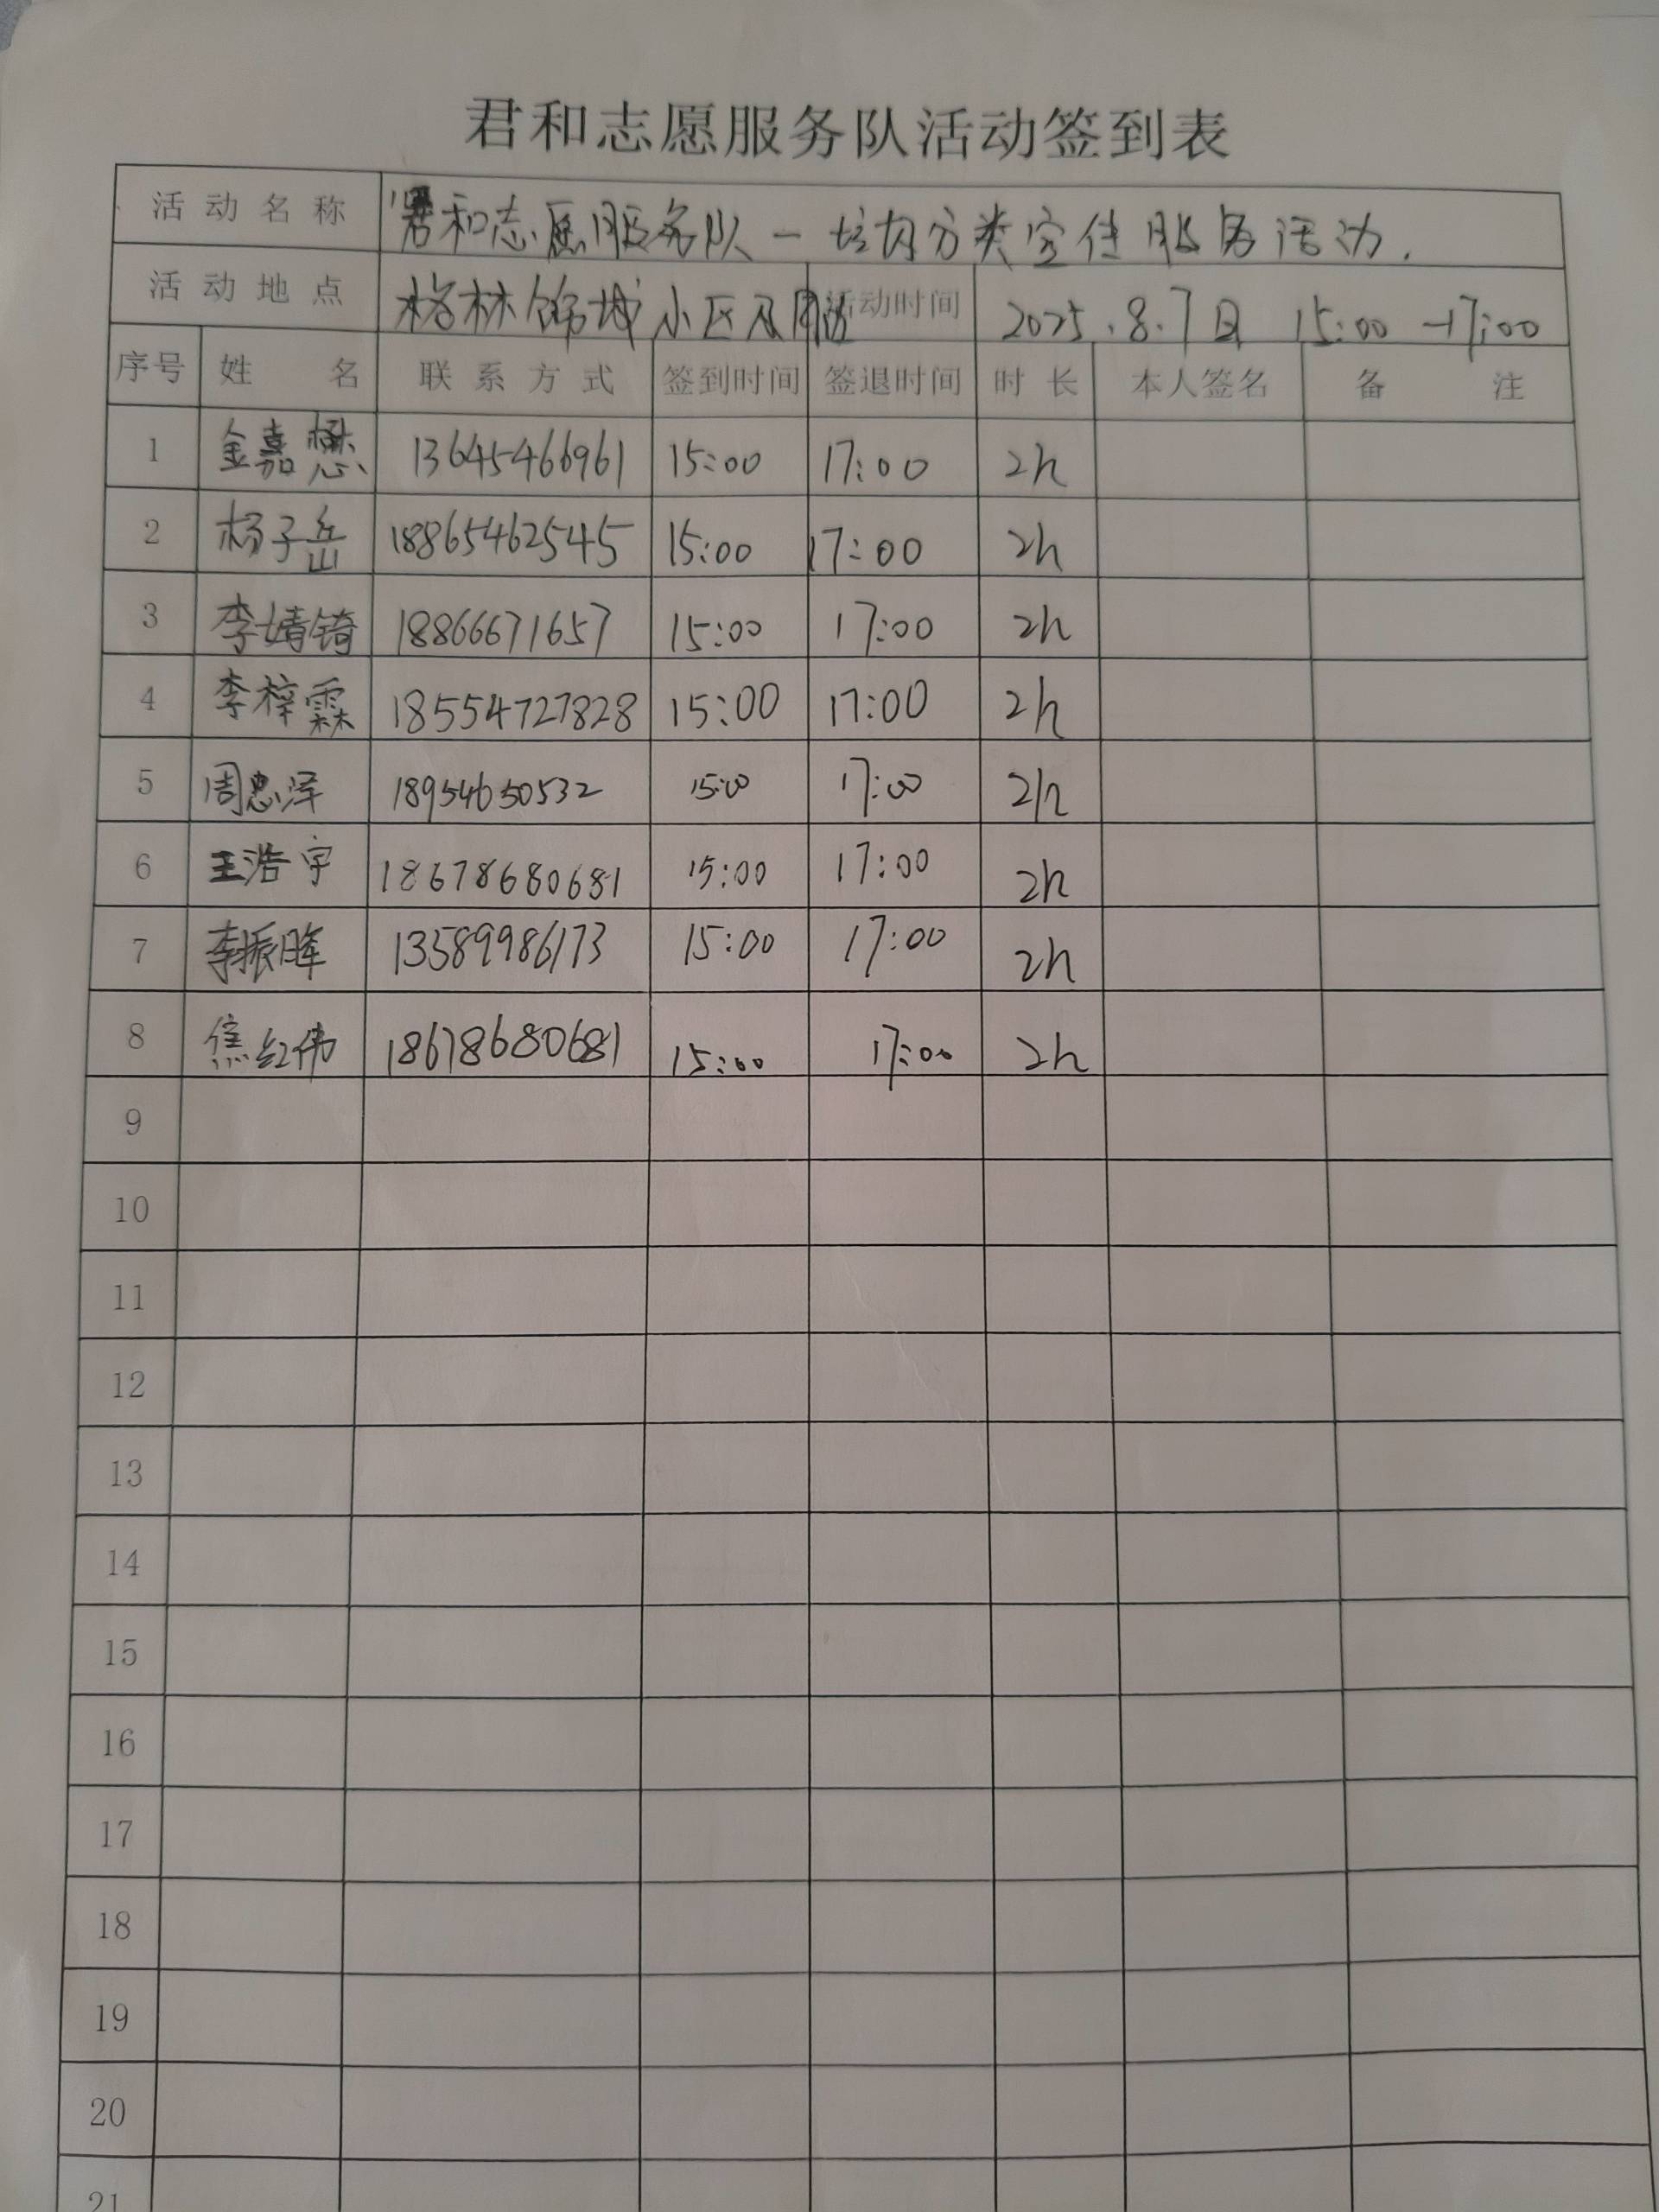 君和志愿服务队活动签到表
活动名称 君和志愿服务队一垃圾分类宣传服务活动.
活动地点 格林锦城小区及周边 活动时间 2025.8.7日 15:00-17:00
序号 姓名 联系方式 签到时间 签退时间 时长 本人签名 备注
1 金嘉懋 13645466961 15:00 17:00 2h
2 杨子岳 18865462545 15:00 17:00 2h
3 李婧锜 18866671657 15:00 17:00 2h
4 李梓霖 18554727828 15:00 17:00 2h
5 周忠泽 18954650532 15:00 17:00 2h
6 王浩宇 18678680681 15:00 17:00 2h
7 李振晖 13589986173 15:00 17:00 2h
8 焦红伟 18678680681 15:00 17:00 2h
9
10
11
12
13
14
15
16
17
18
19
20
21